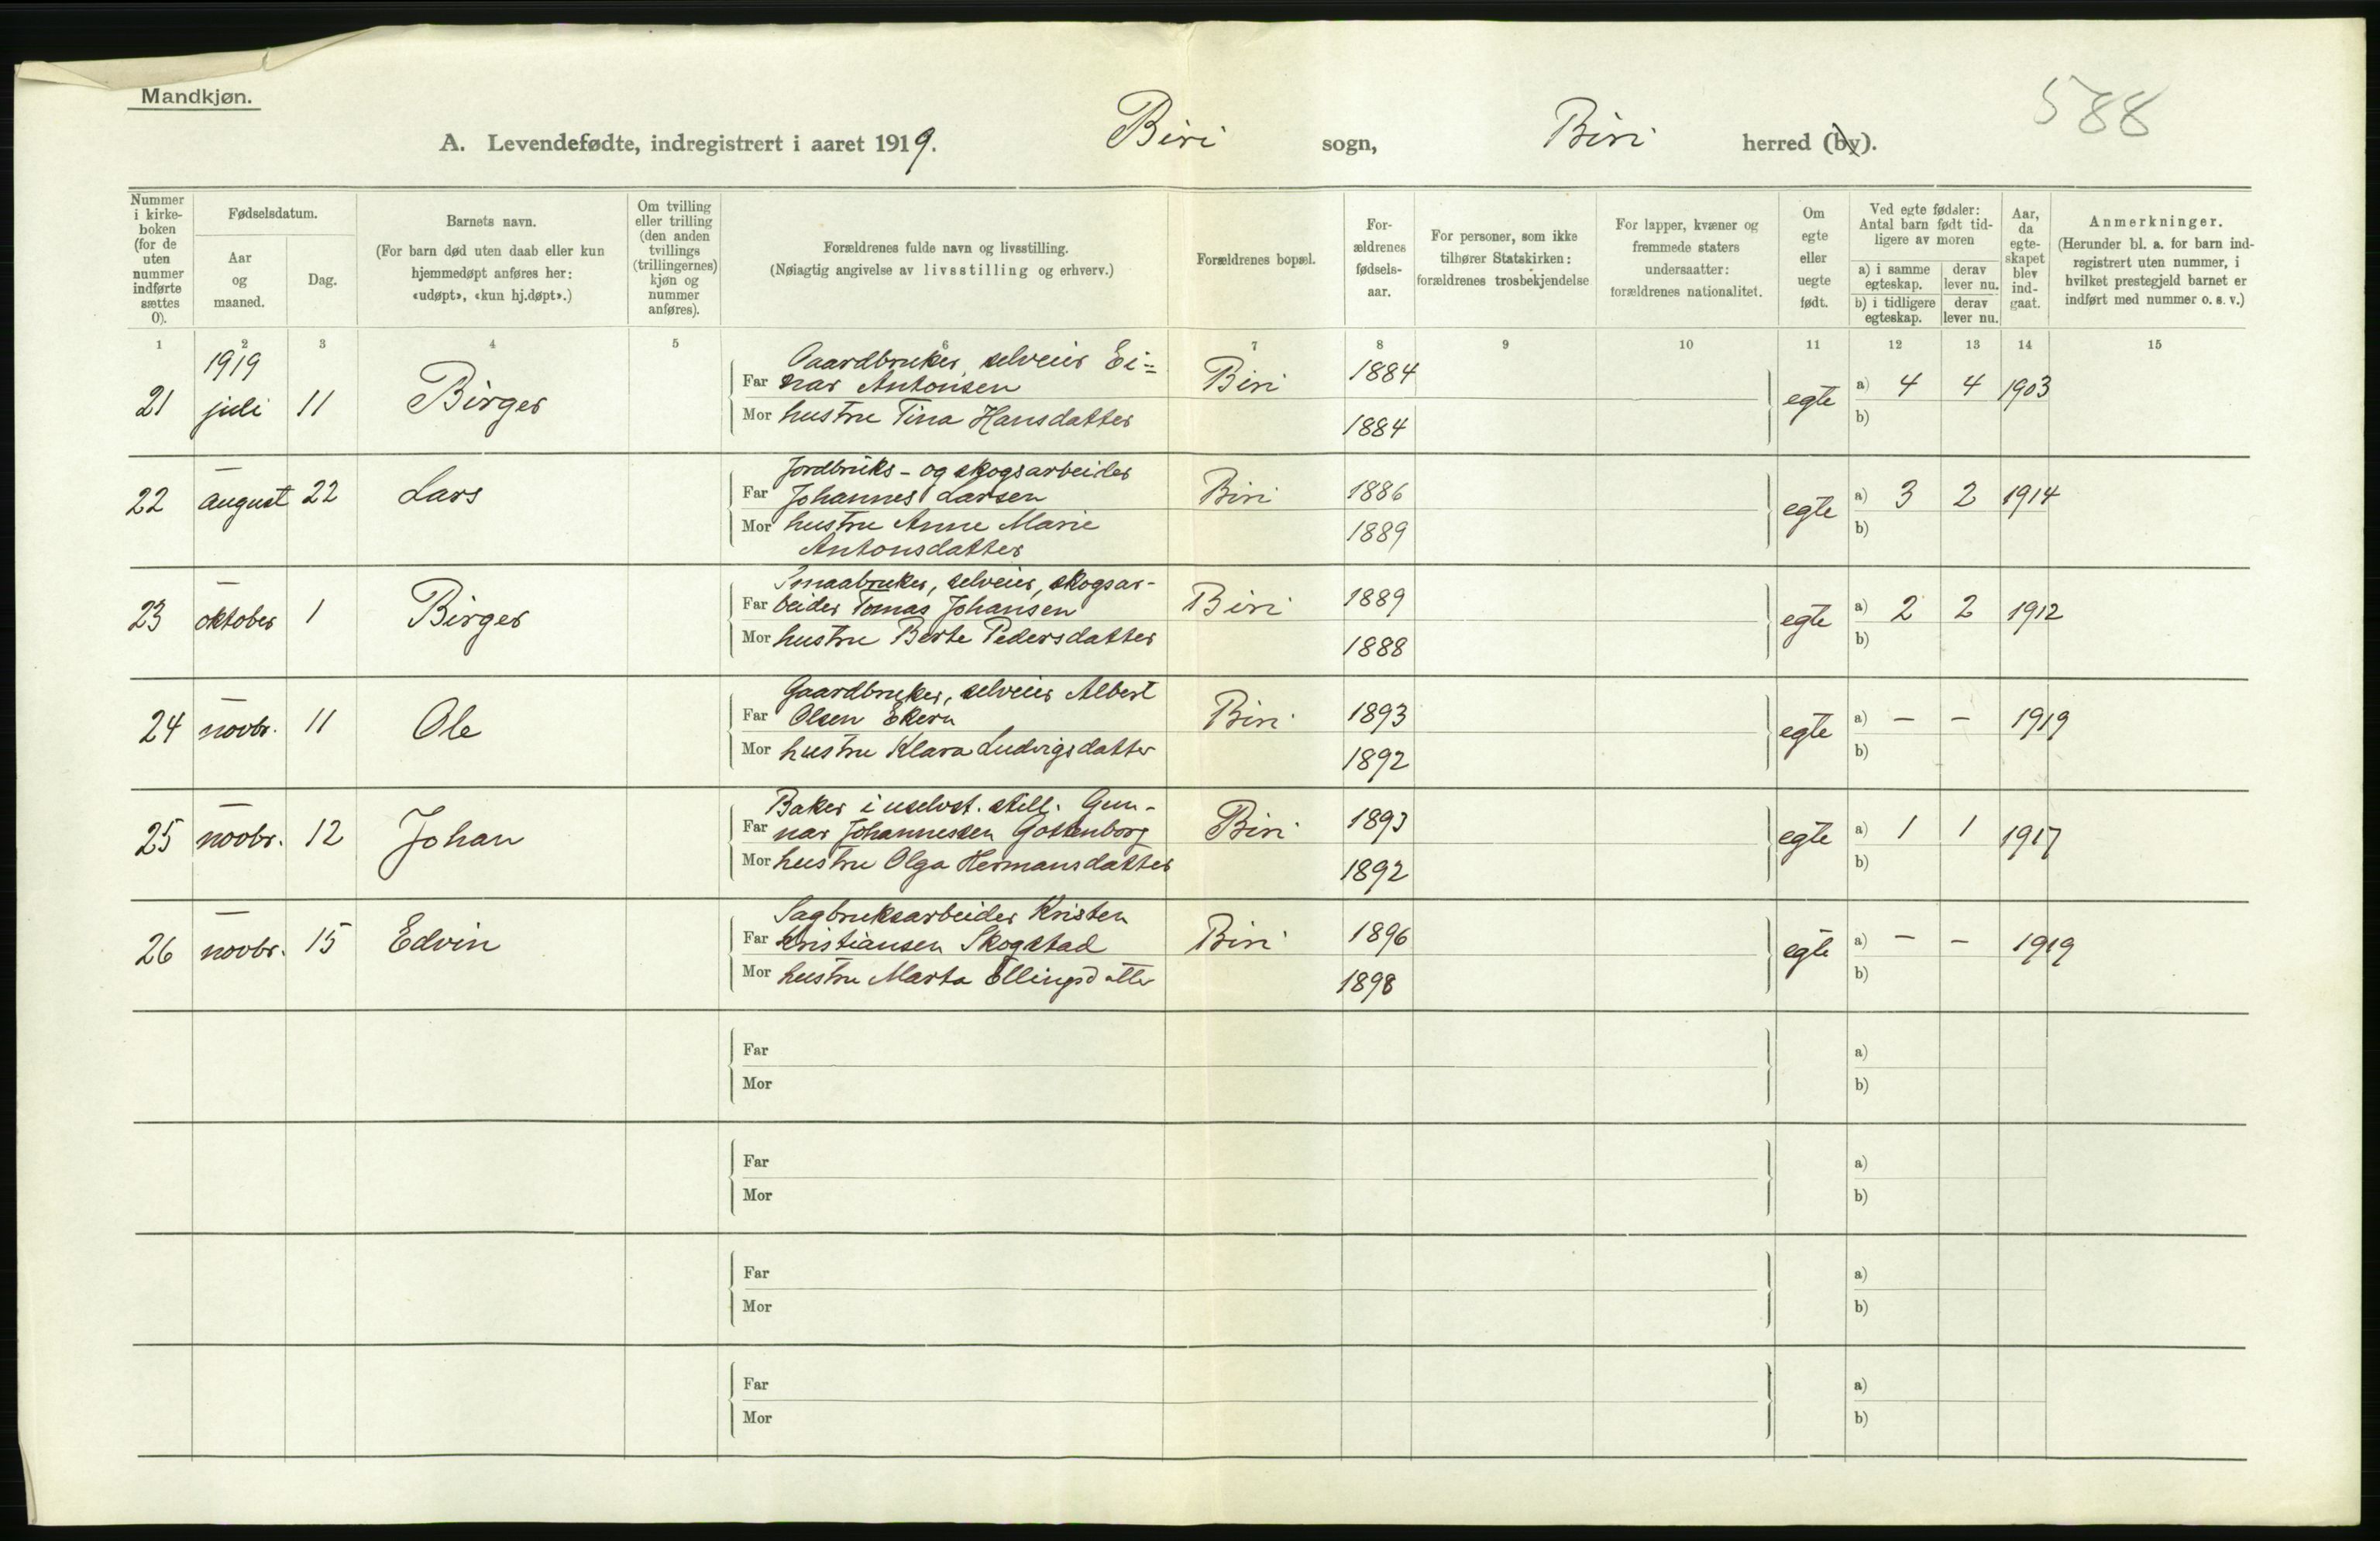 Mandkjøn.
588
A. Levendefødte, indregistrert i aaret 1919. Biri sogn, Biri herred (by).
Nummer i kirke-boken (for de uten nummer indførte sættes 0).
Fødselsdatum.
Aar og maaned.
Dag.
Barnets navn.
(For barn død uten daab eller kun hjemmedøpt anføres her: «udøpt», «kun hj.døpt».)
Om tvilling eller trilling (den anden tvillings (trillingernes) kjøn og nummer anføres).
Forældrenes fulde navn og livsstilling.
(Nøiagtig angivelse av livsstilling og erhverv.)
Forældrenes bopæl.
For-ældrenes fødsels-aar.
For personer, som ikke tilhører Statskirken: forældrenes trosbekjendelse
For lapper, kvæner og fremmede staters undersaatter: forældrenes nationalitet.
Om egte eller uegte født.
Ved egte fødsler: Antal barn født tid-ligere av moren
a) i samme egteskap.
derav lever nu.
b) i tidligere egteskap.
derav lever nu.
Aar, da egte-skapet blev ind-gaat.
Anmerkninger.
(Herunder bl. a. for barn ind-registrert uten nummer, i hvilket prestegjeld barnet er indført med nummer o. s. v.)
1 2 3 4 5 6 7 8 9 10 11 12 13 14 15
1919
Gaardbruker, selveier Ei=
21 juli 11 Birger Far nar Antonsen Biri 1884 egte a) 4 4 1903
Mor hustru Tina Hansdatter 1884 b)
— Jordbruks- og skogsarbeider
22 august 22 Lars Far Johannes Larsen Biri 1886 egte a) 3 2 1914
Mor hustru Anne Marie 1889 b)
Antonsdatter
— Smaabruker, selveier, skogsar-
23 oktober 1 Birger Far beider Tomas Johansen Biri 1889 egte a) 2 2 1912
Mor hustru Berte Pedersdatter 1888 b)
— Gaardbruker, selveier Albert
24 novbr. 11 Ole Far Olsen Ekern Biri 1893 egte a) — — 1919
Mor hustru Klara Ludvigsdatter 1892 b)
— Baker i uselvst. still. Gun-
25 novbr. 12 Johan Far nar Johannessen Gottenborg Biri 1893 egte a) 1 1 1917
Mor hustru Olga Hermansdatter 1892 b)
— Sagbruksarbeider Kristen
26 novbr. 15 Edvin Far Kristiansen Skogstad Biri 1896 egte a) — — 1919
Mor hustru Marta Ellingsdatter 1898 b)
Far a)
Mor b)
Far a)
Mor b)
Far a)
Mor b)
Far a)
Mor b)